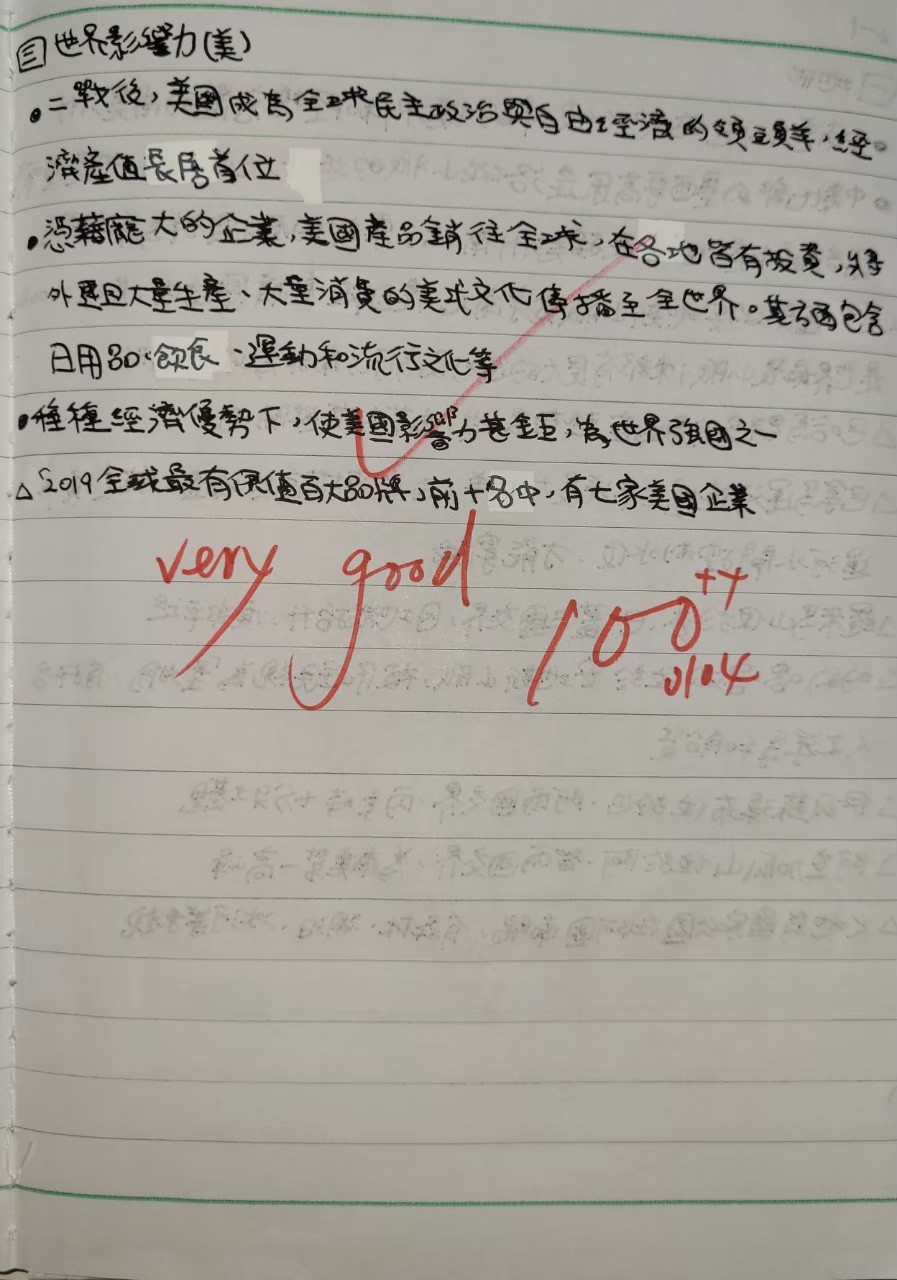 三世界影響力(美)
•二戰後,美國成為全球民主政治與自由經濟的領頭羊,經
濟產值長居首位
•憑藉龐大的企業,美國產品銷往全球,在各地皆有投資,將
大量生產、大量消費的美式文化傳播至全世界。其方面包含
日用品、飲食、運動和流行文化等
•種種經濟優勢下,使美國影響力甚鉅,為世界強國之一
△2019全球最有價值百大品牌,前十名中,有七家美國企業
very good
100++
0104